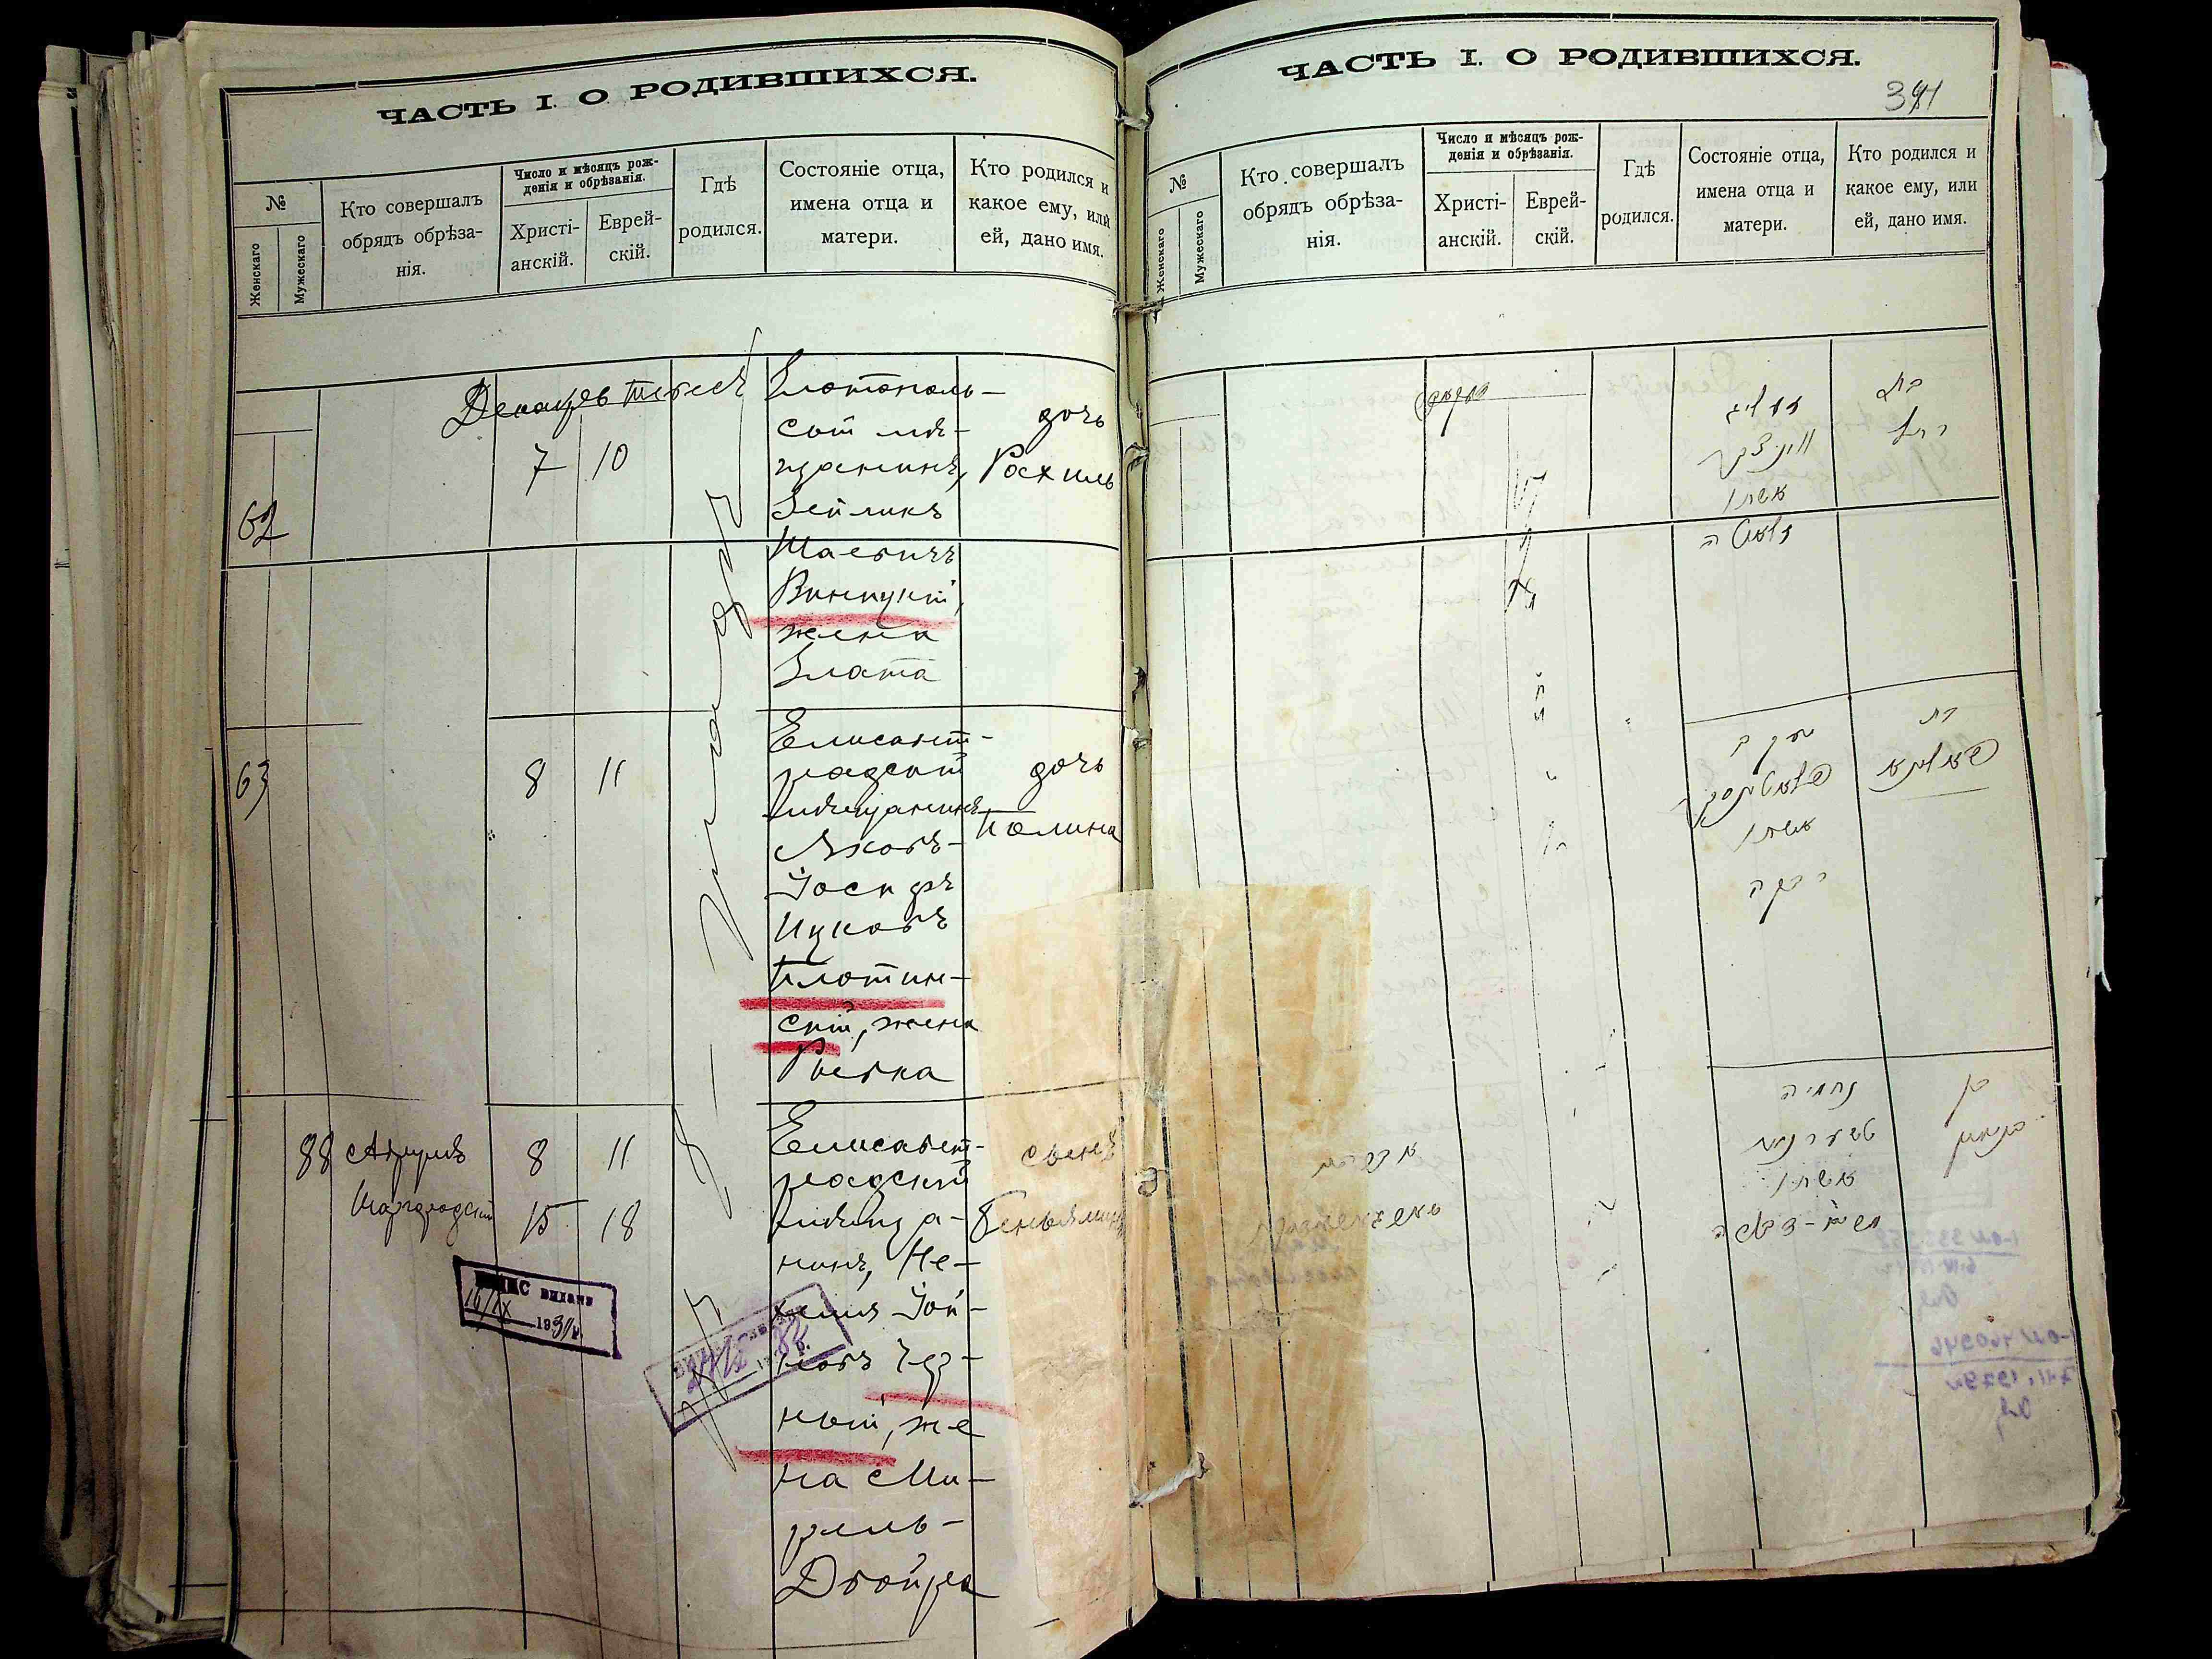 ЧАСТЬ I. О РОДИВШИХСЯ.
№
Женскаго
Мужескаго
Кто совершалъ
обрядъ обрѣза-
нія.
Число и мѣсяцъ рож-
денія и обрѣзанія.
Христі-
анскій.
Еврей-
скій.
Гдѣ
родился.
Состояніе отца,
имена отца и
матери.
Кто родился и
какое ему, или
ей, дано имя.
Декабрь Тебесъ
62
7 10
Златополь-
скій мѣ-
щанинъ,
Зейликъ
Шаевичъ
Винницкій,
жена
Злата
дочь
Рахиль
63
8 11
Елисавет-
градскій
мѣщанинъ
Яковъ-
Іосифъ
Ицковъ
Плотин-
скій, жена
Ривка
дочь
Полина
88
Шаргородскій
8 11
15 18
Елисавет-
градскій
мѣща-
нинъ, Не-
хемія Іой-
новъ Чер-
ный, же
на Ми-
рель-
Двойра
сынъ
Беньяминъ
ЗАГС видано
16/IX 1931 р.
ЧАСТЬ I. О РОДИВШИХСЯ.
341
№
Женскаго
Мужескаго
Кто совершалъ
обрядъ обрѣза-
нія.
Число и мѣсяцъ рож-
денія и обрѣзанія.
Христі-
анскій.
Еврей-
скій.
Гдѣ
родился.
Состояніе отца,
имена отца и
матери.
Кто родился и
какое ему, или
ей, дано имя.
בת
רחל
זעליג
אשתו
זלאטה
בת
יעקב
אשתו
רבקה
בן
בנימין
נחמיה
אשתו